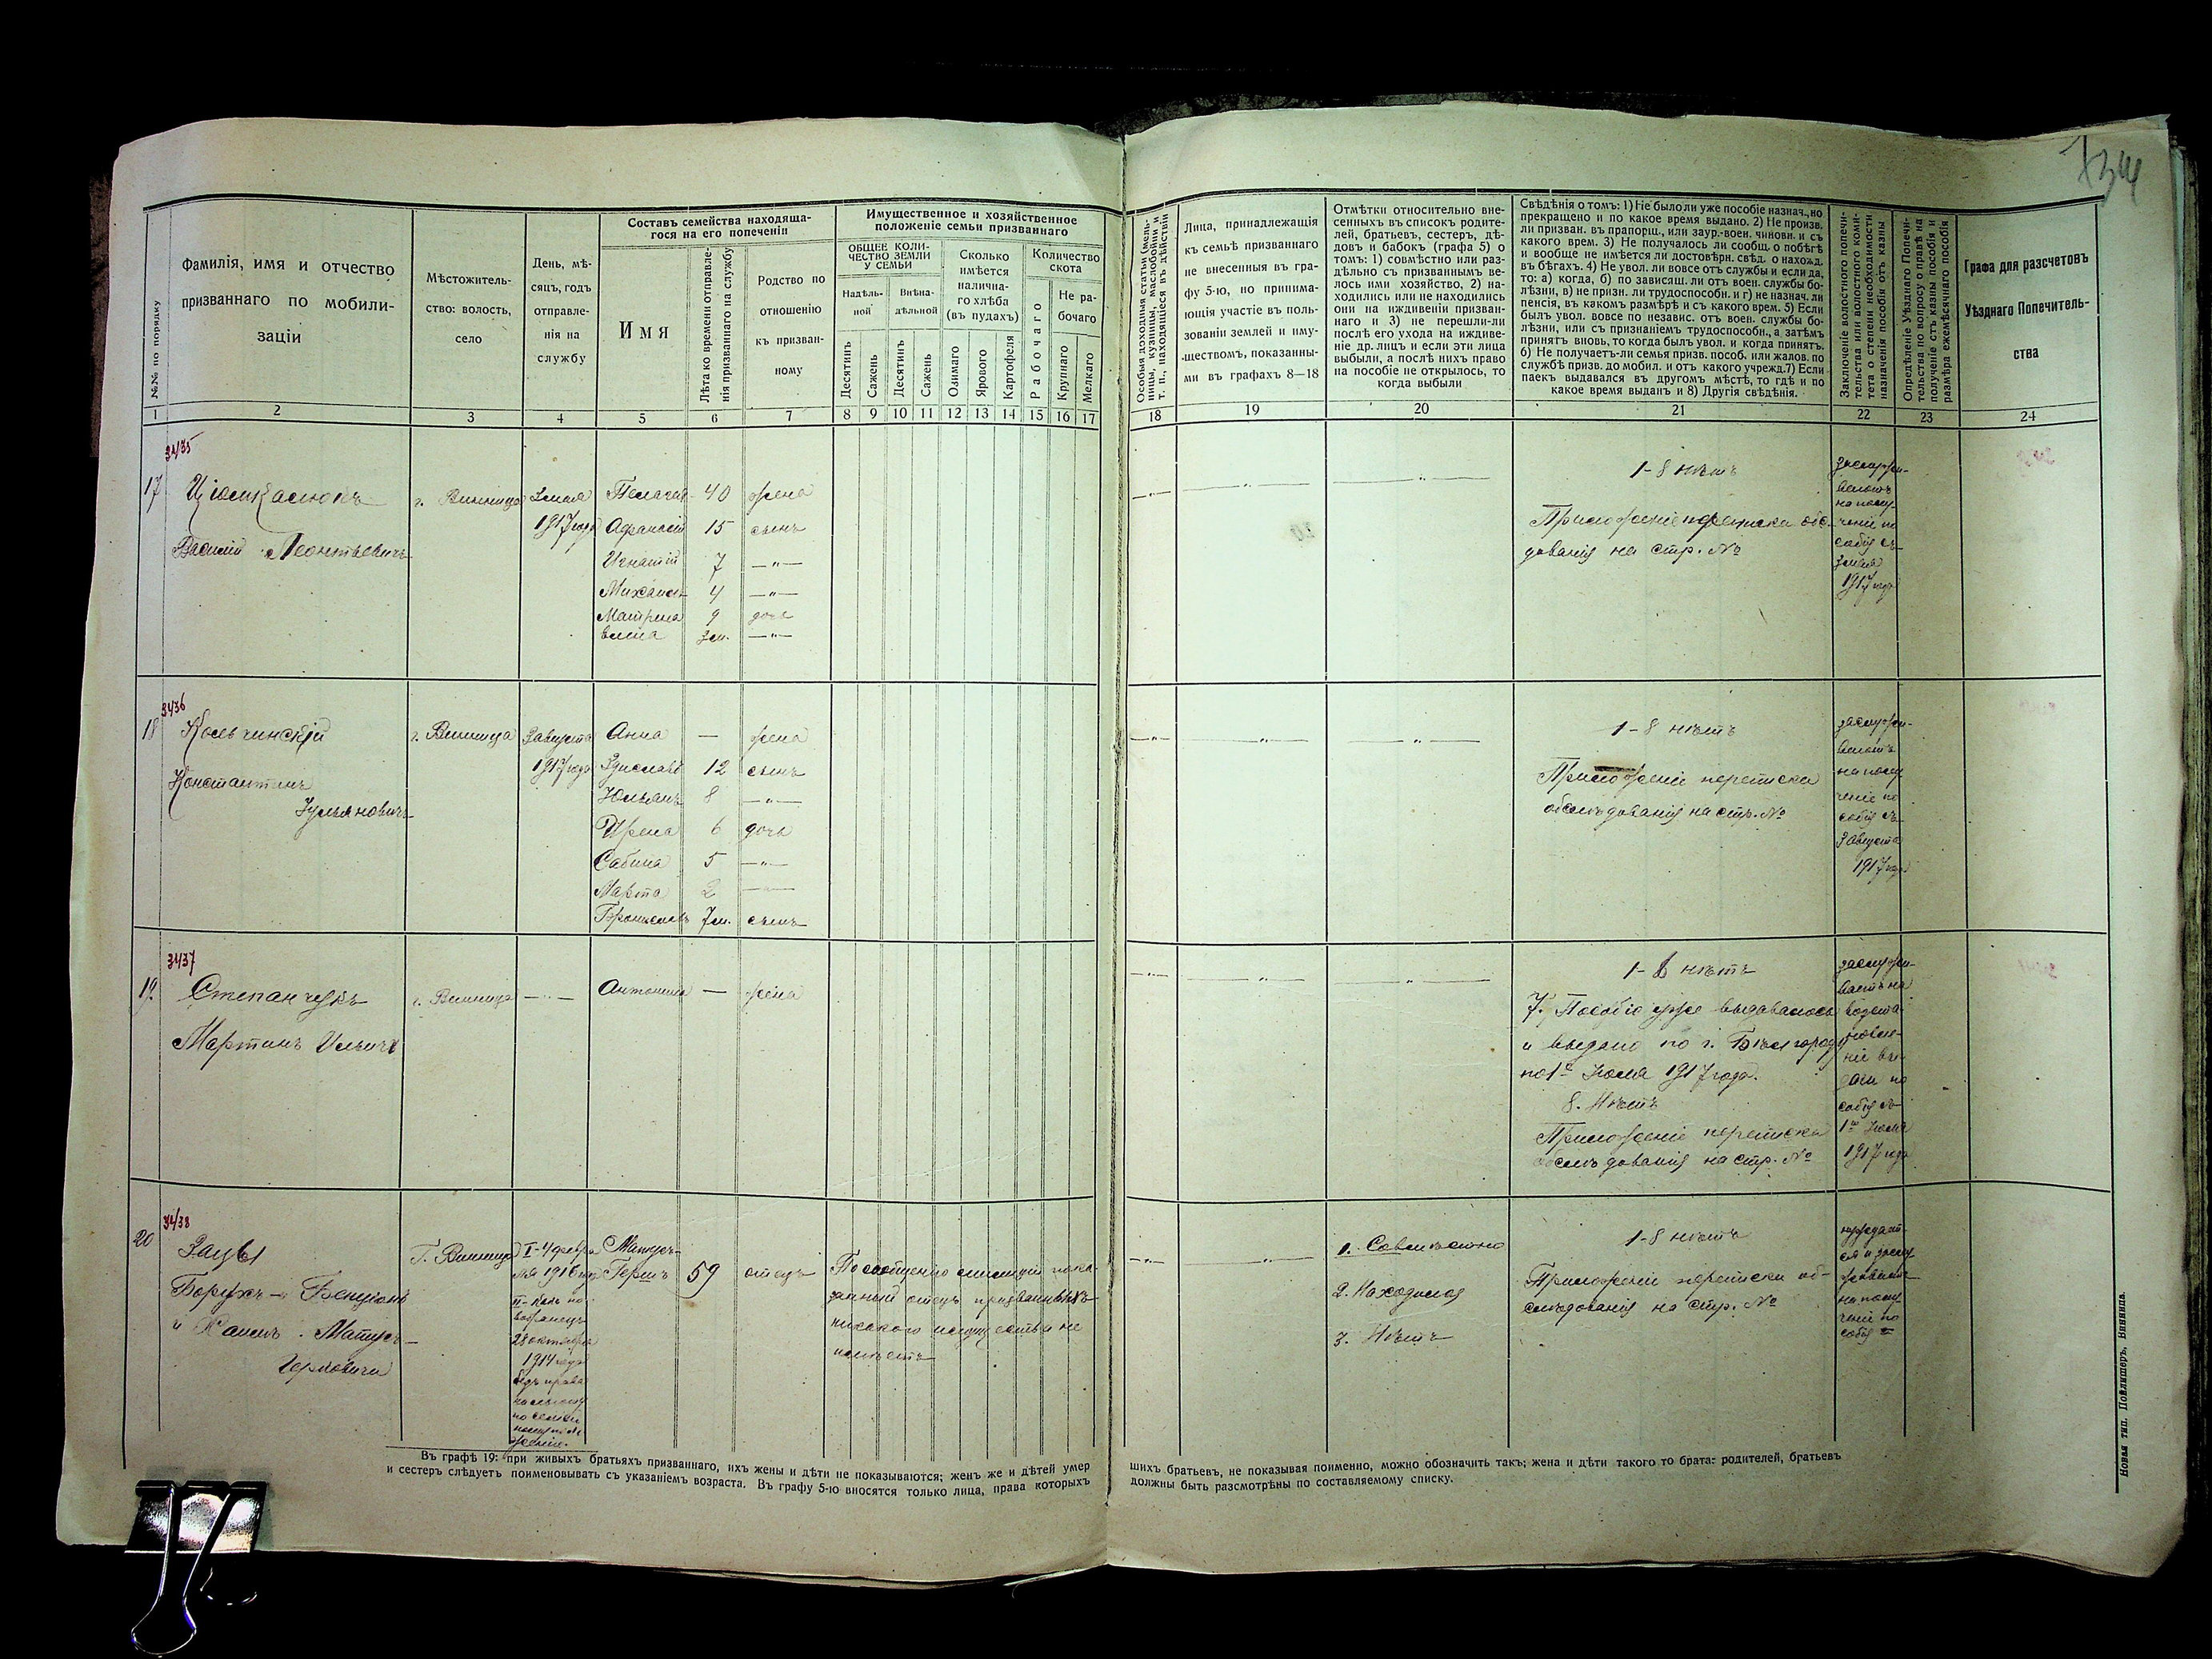 734
Составъ семейства находяща-
гося на его попеченіи
Имущественное и хозяйственное
положеніе семьи призваннаго
№№ по порядку
Фамилія, имя и отчество
призваннаго по мобили-
заціи
Мѣстожитель-
ство: волость,
село
День, мѣ-
сяцъ, годъ
отправле-
нія на
службу
Имя
Лѣта ко времени отправле-
нія призваннаго на службу
Родство по
отношенію
къ призван-
ному
ОБЩЕЕ КОЛИ-
ЧЕСТВО ЗЕМЛИ
У СЕМЬИ
Надѣль-
ной
Внѣна-
дѣльной
Десятинъ
Сажень
Десятинъ
Сажень
Сколько
имѣется
налична-
го хлѣба
(въ пудахъ)
Озимаго
Ярового
Картофеля
Количество
скота
Рабочаго
Не ра-
бочаго
Крупнаго
Мелкаго
Особыя доходныя статьи (мель-
ницы, кузницы, маслобойни и
т. п., находящіеся въ дѣйствіи
Лица, принадлежащія
къ семьѣ призваннаго
не внесенныя въ гра-
фу 5-ю, но принима-
ющія участіе въ поль-
зованіи землей и иму-
ществомъ, показанны-
ми въ графахъ 8—18
Отмѣтки относительно вне-
сенныхъ въ списокъ родите-
лей, братьевъ, сестеръ, дѣ-
довъ и бабокъ (графа 5) о
томъ: 1) совмѣстно или раз-
дѣльно съ призваннымъ ве-
лось ими хозяйство, 2) на-
ходились или не находились
они на иждивеніи призван-
наго и 3) не перешли-ли
послѣ его ухода на иждиве-
ніе др. лицъ и если эти лица
выбыли, а послѣ нихъ право
на пособіе не открылось, то
когда выбыли
Свѣдѣнія о томъ: 1) Не было ли уже пособіе назнач., но
прекращено и по какое время выдано. 2) Не произв.
ли призван. въ прапорщ., или заур.-воен. чиновн. и съ
какого врем. 3) Не получалось ли сообщ. о побѣгѣ
и вообще не имѣется ли достовѣрн. свѣд. о нахожд.
въ бѣгахъ. 4) Не увол. ли вовсе отъ службы и если да,
то: а) когда, б) по зависящ. ли отъ воен. службы бо-
лѣзни, в) не призн. ли трудоспособн. и г) не назнач. ли
пенсія, въ какомъ размѣрѣ и съ какого врем. 5) Если
былъ увол. вовсе по независ. отъ воен. службы бо-
лѣзни, или съ признаніемъ трудоспособн., а затѣмъ
принятъ вновь, то когда былъ увол. и когда принятъ.
6) Не получаетъ-ли семья призв. пособ. или жалов. по
службѣ призв. до мобил. и отъ какого учрежд. 7) Если
паекъ выдавался въ другомъ мѣстѣ, то гдѣ и по
какое время выданъ и 8) Другія свѣдѣнія.
Заключеніе волостного попечи-
тельства или волостного коми-
тета о степени необходимости
назначенія пособія отъ казны
Опредѣленіе Уѣзднаго Попечи-
тельства по вопросу о правѣ на
полученіе отъ казны пособія и
размѣра ежемѣсячнаго пособія
Графа для разсчетовъ
Уѣзднаго Попечитель-
ства
1 2 3 4 5 6 7 8 9 10 11 12 13 14 15 16 17 18 19 20 21 22 23 24
3435
17
Василій Леонтьевичъ
г. Винница
1917 года
Пелагея 40 жена
Афанасій 15 сынъ
Игнатій 7 —"—
Михаилъ 4 —"—
Матрена 9 дочь
3 м. —"—
—"— —"— —"—
1-8 нѣтъ
Приложеніе переписка обслѣ-
дованія на стр. №
заслужи-
ваютъ
на полу-
ченіе по
собія съ
1917 года
3436
18
Кольчинскій
Константинъ
Іульяновичъ
г. Винница
3 августа
1917 года
Анна — жена
Здиславъ 12 сынъ
Юльянъ 8 —"—
Ирена 6 дочь
Сабина 5 —"—
Марта 2 —"—
Брониславъ 7 м. сынъ
—"— —"— —"—
1-8 нѣтъ
Приложеніе переписка
обслѣдованія на стр. №
заслужи-
ваютъ
на полу
ченіе по
собія съ
3 августа
1917 года
3437
19
Степанчукъ
Мартинъ Ильичъ
г. Винница
—"—
Антонина — жена
—"— —"— —"—
1-6 нѣтъ
7. Пособіе уже выдавалось
и выдано по г. Бѣлгороду
по 1е Іюля 1917 года.
8. Нѣтъ
Приложеніе переписка
обслѣдованія на стр. №
заслужи-
ваетъ на
возста-
новле-
ніе вы-
дачи по
собія съ
1го Іюля
1917 года
3438
20
Зацъ
Борухъ - Бенціонъ
и Хаимъ . Матусъ -
Гершовичи
Г. Винница
I - 4 февра
ля 1916 года
II - Какъ но
вобранецъ
28 октября
1914 года
безъ права
по семей
Матусъ-
Гершъ 59 отецъ
По сообщенію милиціи пока-
занный отецъ призванныхъ
никакого имущества не
имѣетъ
—"— —"—
1. Совмѣстно
2. Находился
3. Нѣтъ
1-8 нѣтъ
Приложеніе переписки об-
слѣдованія на стр. №
нуждает-
ся и заслу
живаетъ
на полу
ченіе по
собія
Въ графѣ 19: при живыхъ братьяхъ призваннаго, ихъ жены и дѣти не показываются; женъ же и дѣтей умер
и сестеръ слѣдуетъ поименовывать съ указаніемъ возраста. Въ графу 5-ю вносятся только лица, права которыхъ
шихъ братьевъ, не показывая поименно, можно обозначить такъ; жена и дѣти такого то брата: родителей, братьевъ
должны быть разсмотрѣны по составляемому списку.
Новая тип. Поплишеръ, Винница.